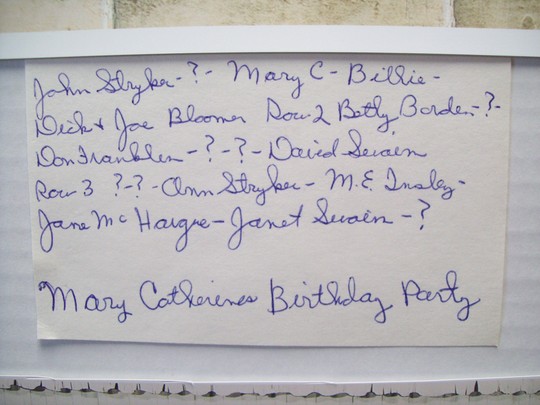 John Stryker - ? - Mary C - Billie -
Dick & Joe Bloomer Row 2 Betty Borden - ? -
Don Franklin - ? - ? - David Swain
Row 3 ? - ? - Ann Stryker - M.E. Insley -
Jane Mc Hargue - Janet Swain - ?
Mary Catherines Birthday Party